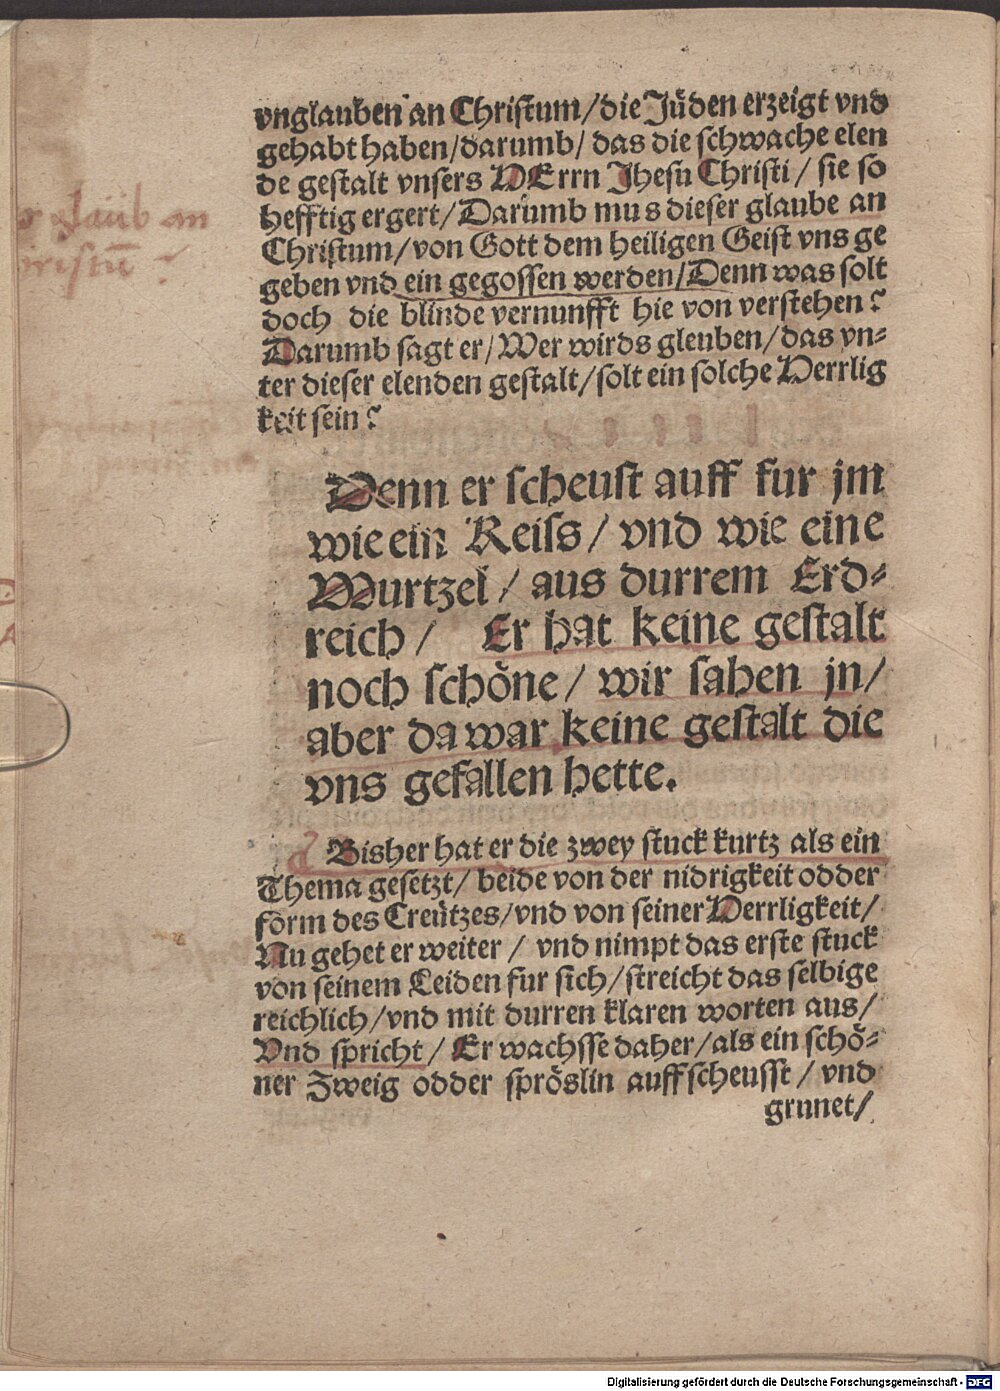 vnglauben an Christum/die Jüden erzeigt vnd
gehabt haben/darumb/ das die schwache elen
de gestalt vnsers HErrn Jhesu Christi/ sie so
hefftig ergert/ Darumb mus dieser glaube an
Christum/von Gott dem heiligen Geist vns ge
geben vnd ein gegossen werden/Denn was solt
doch die blinde vernunfft hie von verstehen?
Darumb sagt er/Wer wirds gleuben/das vn⸗
ter dieser elenden gestalt/solt ein solche Herrlig
keit sein?
laub an
Denn er scheust auff fur jm
wie ein Reiss/ vnd wie eine
Wurtzel/ aus durrem Erd⸗
reich/ Er hat keine gestalt
noch schöne/ wir sahen jn/
aber da war keine gestalt die
vns gefallen hette.
Bisher hat er die zwey stuck kurtz als ein
Thema gesetzt/ beide von der nidrigkeit odder
form des Creützes/vnd von seiner Herrligkeit/
Nu gehet er weiter/ vnd nimpt das erste stuck
von seinem Leiden fur sich/streicht das selbige
reichlich/vnd mit durren klaren worten aus/
Vnd spricht/ Er wachsse daher/als ein schö⸗
ner Zweig odder spröslin auffscheusst/ vnd
grunet/
Digitalisierung gefördert durch die Deutsche Forschungsgemeinschaft - DFG